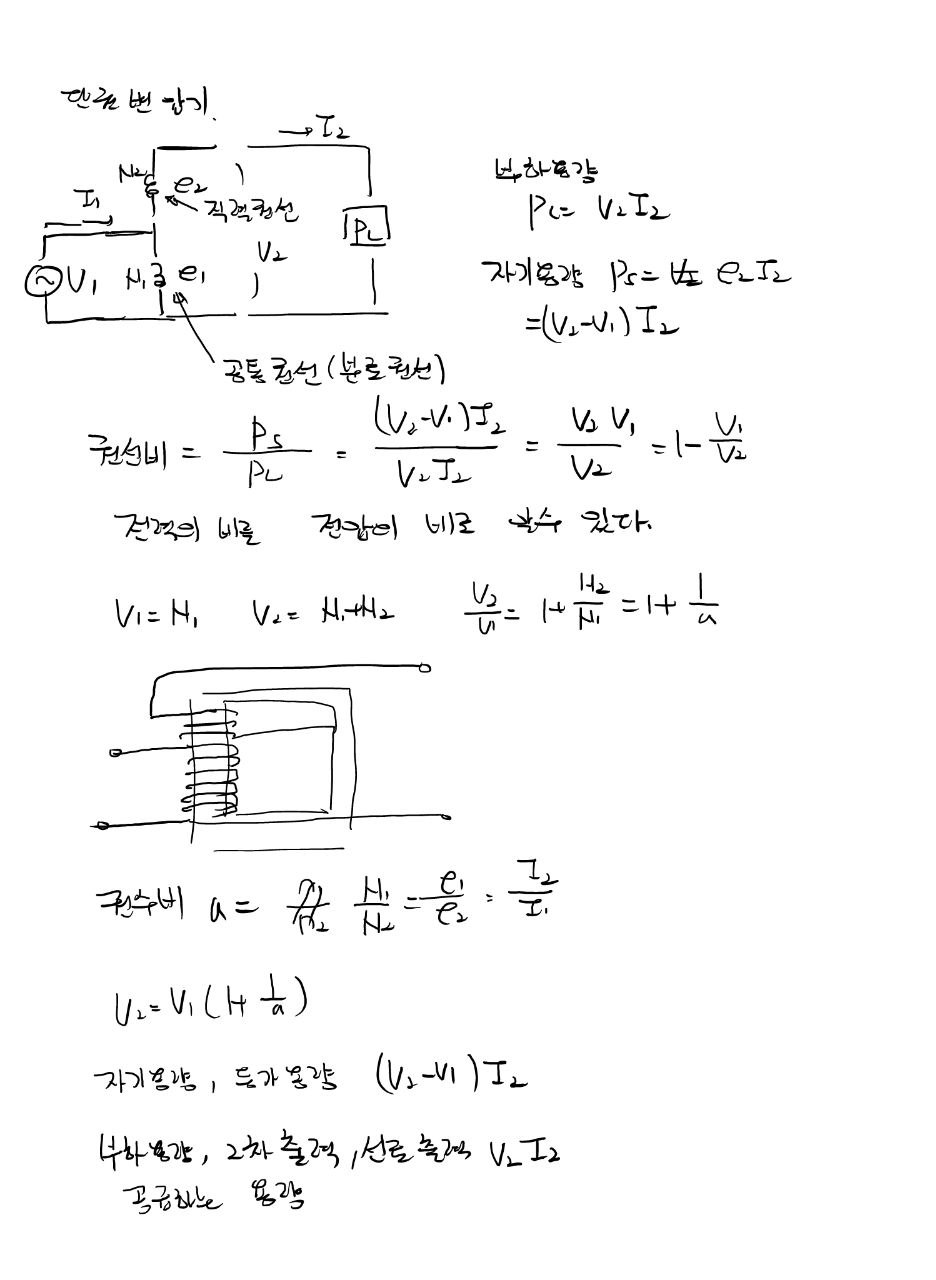 단권변압기.
→ I₂
N₂ e₂
I₁
직렬권선
V₁ N₁ e₁ V₂ PL
공통권선(분로권선)
부하용량
PL= V₂I₂
자기용량 Ps= e₂I₂
=(V₂-V₁)I₂
권선비 = Ps/PL = (V₂-V₁)I₂/V₂I₂ = V₂ V₁/V₂ = 1-V₁/V₂
전력의 비를 전압의 비로 수 있다.
V₁=N₁ V₂= N₁+N₂ V₂/V₁= 1+N₂/N₁=1+1/a
권수비 a= N₁/N₂=e₁/e₂=I₂/I₁
V₂=V₁(1+1/a)
자기용량, 등가용량 (V₂-V₁)I₂
부하용량, 2차출력, 선로출력 V₂I₂
공급하는 용량